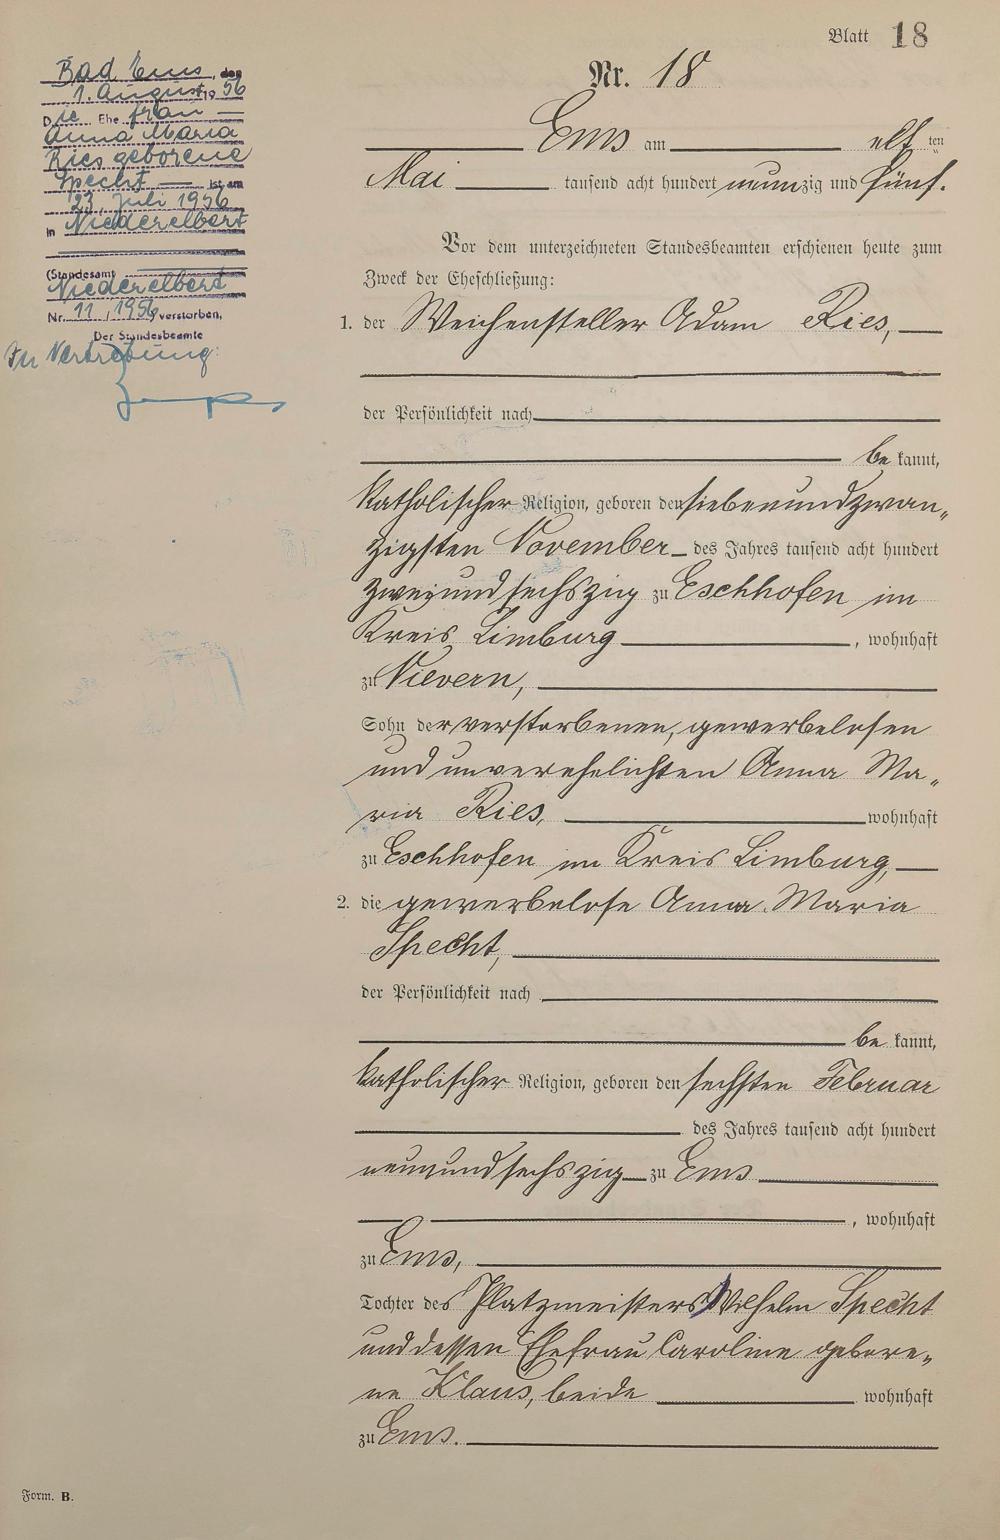 Blatt 18
Bad Ems, den
1. August 1956
Die Ehefrau
Anna Maria
Ries geborene
Specht ist am
23. Juli 1956
in Niederelbert
(Standesamt
Niederelbert
Nr. 11, 1956 verstorben,
Der Standesbeamte
In Vertretung:
Nr. 18
Ems am elften
Mai tausend acht hundert neunzig und fünf.
Vor dem unterzeichneten Standesbeamten erschienen heute zum
Zweck der Eheschließung:
1. der Weichensteller Adam Ries,
der Persönlichkeit nach
bekannt,
katholischer Religion, geboren den siebenundzwan„
zigsten November des Jahres tausend acht hundert
zweiundsechszig zu Eschhofen im
Kreis Limburg, wohnhaft
zu Nievern,
Sohn der verstorbenen, gewerbelosen
und unverehelichten Anna Ma„
ria Ries, wohnhaft
zu Eschhofen im Kreis Limburg,
2. die gewerbelose Anna Maria
Specht,
der Persönlichkeit nach
bekannt,
katholischer Religion, geboren den sechsten Februar
des Jahres tausend acht hundert
neunundsechszig zu Ems
, wohnhaft
zu Ems,
Tochter des Platzmeisters Wilhelm Specht
und dessen Ehefrau Caroline gebore„
ne Klaus, beide wohnhaft
zu Ems.
Form. B.